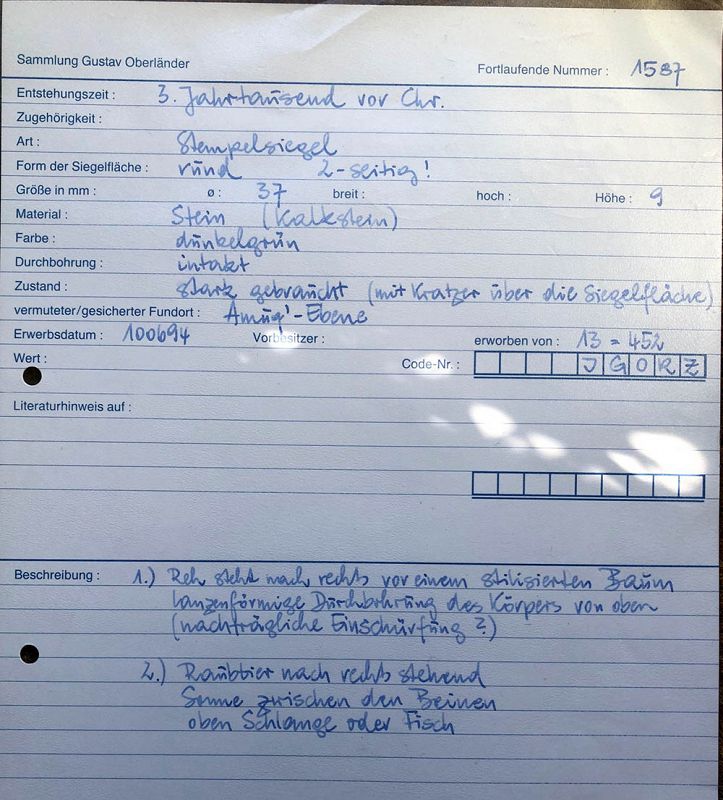 Sammlung Gustav Oberländer
Fortlaufende Nummer : 1587
Entstehungszeit : 3. Jahrtausend vor Chr.
Zugehörigkeit :
Art : Stempelsiegel
Form der Siegelfläche : rund 2-seitig!
Größe in mm : ø : 37 breit : hoch : Höhe : 9
Material : Stein (Kalkstein)
Farbe : dunkelgrün
Durchbohrung : intakt
Zustand : stark gebraucht (mit Kratzer über die Siegelfläche)
vermuteter/gesicherter Fundort : Amuq'-Ebene
Erwerbsdatum : 100694 Vorbesitzer : erworben von : 13 = 452
Wert : Code-Nr. : J G O R Z
Literaturhinweis auf :
Beschreibung : 1.) Reh steht nach rechts vor einem stilisierten Baum
lanzenförmige Durchbohrung des Körpers von oben
(nachträgliche Einschürfung ?)
2.) Raubtier nach rechts stehend
Sonne zwischen den Beinen
oben Schlange oder Fisch